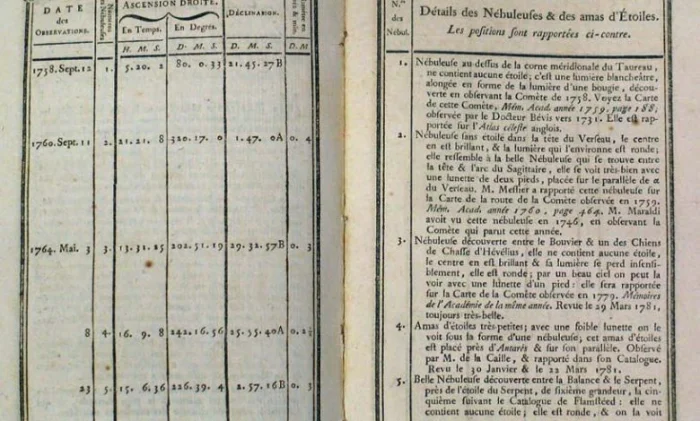 DATE
des
OBSERVATIONS.
Numéros
des Nébuleuses
ASCENSION DROITE.
En Temps.
En Degrés.
DÉCLINAISON.
H. M. S.
D. M. S.
D. M. S.
D. M
1758. Sept. 12 1. 5. 20. 2 80. 0. 33 21. 45. 27B
1760. Sept. 11 2. 21. 21. 8 320. 17. 0 1. 47. 0A 0. 4
1764. Mai. 3 3. 13. 31. 25 202. 51. 19 29. 32. 57B 0. 3
8 4. 16. 9. 8 242. 16. 56 25. 55. 40A 0. 2½
23 5. 15. 6. 36 226. 39. 4 2. 57. 16B 0. 3
N.os
des
Nébul.
Détails des Nébuleuses & des amas d'Étoiles.
Les positions sont rapportées ci-contre.
1. Nébuleuse au-dessus de la corne méridionale du Taureau,
ne contient aucune étoile; c'est une lumière blancheâtre,
alongée en forme de la lumière d'une bougie, décou-
verte en observant la Comète de 1758. Voyez la Carte
de cette Comète, Mém. Acad. année 1759, page 188;
observée par le Docteur Bévis vers 1731. Elle est rap-
portée sur l'Atlas céleste anglois.
2. Nébuleuse sans étoile dans la tête du Verseau, le centre
en est brillant, & la lumière qui l'environne est ronde;
elle ressemble à la belle Nébuleuse qui se trouve entre
la tête & l'arc du Sagittaire, elle se voit très-bien avec
une lunette de deux pieds, placée sur le parallèle de α
du Verseau. M. Messier a rapporté cette nébuleuse sur
la Carte de la route de la Comète observée en 1759.
Mém. Acad. année 1760, page 464. M. Maraldi
avoit vu cette nébuleuse en 1746, en observant la
Comète qui parut cette année.
3. Nébuleuse découverte entre le Bouvier & un des Chiens
de Chasse d'Hévélius, elle ne contient aucune étoile,
le centre en est brillant & sa lumière se perd insensi-
blement, elle est ronde; par un beau ciel on peut la
voir avec une lunette d'un pied: elle sera rapportée
sur la Carte de la Comète observée en 1779. Mémoires
de l'Académie de la même année. Revue le 29 Mars 1781,
toujours très-belle.
4. Amas d'étoiles très-petites; avec une foible lunette on le
voit sous la forme d'une nébuleuse; cet amas d'étoiles
est placé près d'Antarès & sur son parallèle. Observé
par M. de la Caille, & rapporté dans son Catalogue.
Revu le 30 Janvier & le 22 Mars 1781.
5. Belle Nébuleuse découverte entre la Balance & le Serpent,
près de l'étoile du Serpent, de sixième grandeur, la cin-
quième suivant le Catalogue de Flamstéed: elle ne
contient aucune étoile; elle est ronde, & on la voit